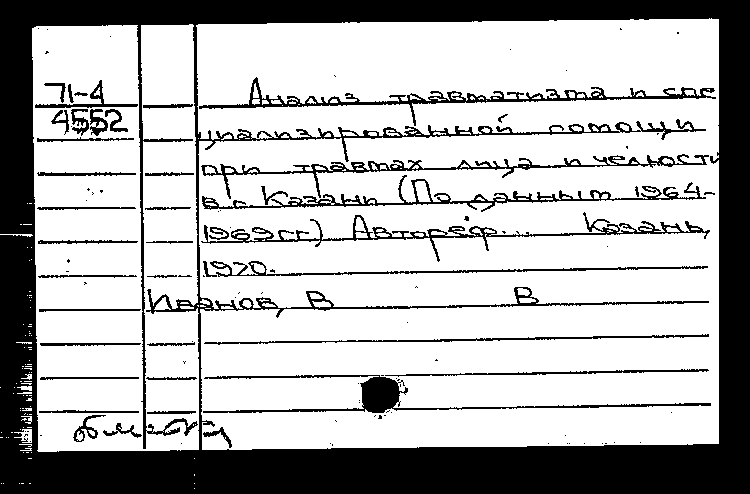 71-4
4552
Анализ травматизма и спе
циализированной помощи
при травмах лица и челюсти
в г. Казани (По данным 1964-
1969гг.) Автореф... Казань,
1970.
Иванов, В В